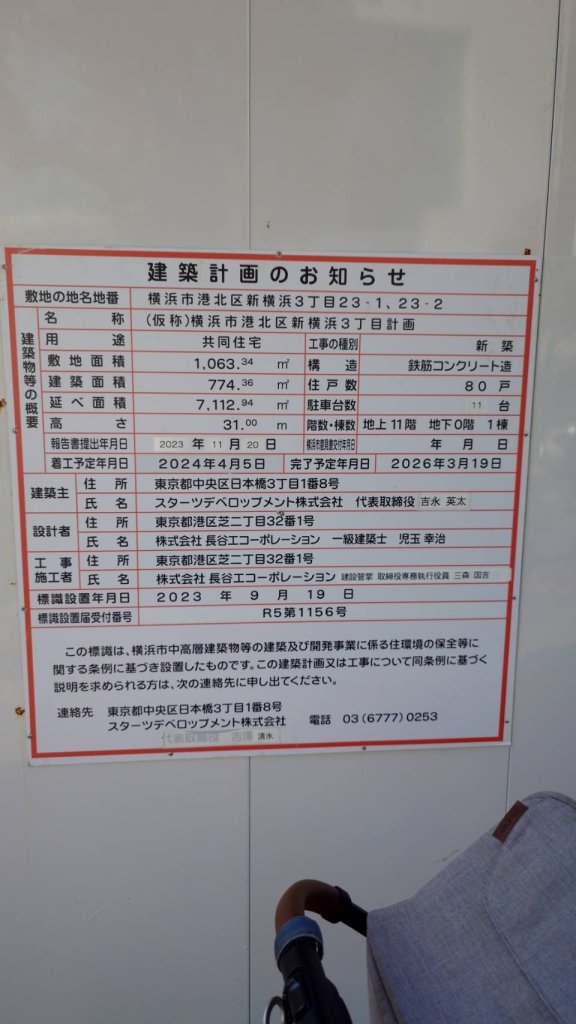 建築計画のお知らせ
敷地の地名地番 横浜市港北区新横浜3丁目23-1, 23-2
建築物等の概要
名称 (仮称)横浜市港北区新横浜3丁目計画
用途 共同住宅 工事の種別 新築
敷地面積 1,063.34 ㎡ 構造 鉄筋コンクリート造
建築面積 774.36 ㎡ 住戸数 80戸
延べ面積 7,112.94 ㎡ 駐車台数 11 台
高さ 31.00 m 階数・棟数 地上11階 地下0階 1棟
報告書提出年月日 2023 年 11 月 20 日 横浜市意見書交付年月日 年 月 日
着工予定年月日 2024年4月5日 完了予定年月日 2026年3月19日
建築主 住所 東京都中央区日本橋3丁目1番8号
氏名 スターツデベロップメント株式会社 代表取締役 吉永 英太
設計者 住所 東京都港区芝二丁目32番1号
氏名 株式会社 長谷工コーポレーション 一級建築士 児玉 幸治
工事施工者 住所 東京都港区芝二丁目32番1号
氏名 株式会社 長谷工コーポレーション 建設管掌 取締役専務執行役員 三森 国吉
標識設置年月日 2023 年 9 月 19 日
標識設置届受付番号 R5第1156号
この標識は、横浜市中高層建築物等の建築及び開発事業に係る住環境の保全等に
関する条例に基づき設置したものです。この建築計画又は工事について同条例に基づく
説明を求められる方は、次の連絡先に申し出てください。
連絡先 東京都中央区日本橋3丁目1番8号
スターツデベロップメント株式会社 電話 03(6777)0253
代表取締役 吉澤 清水